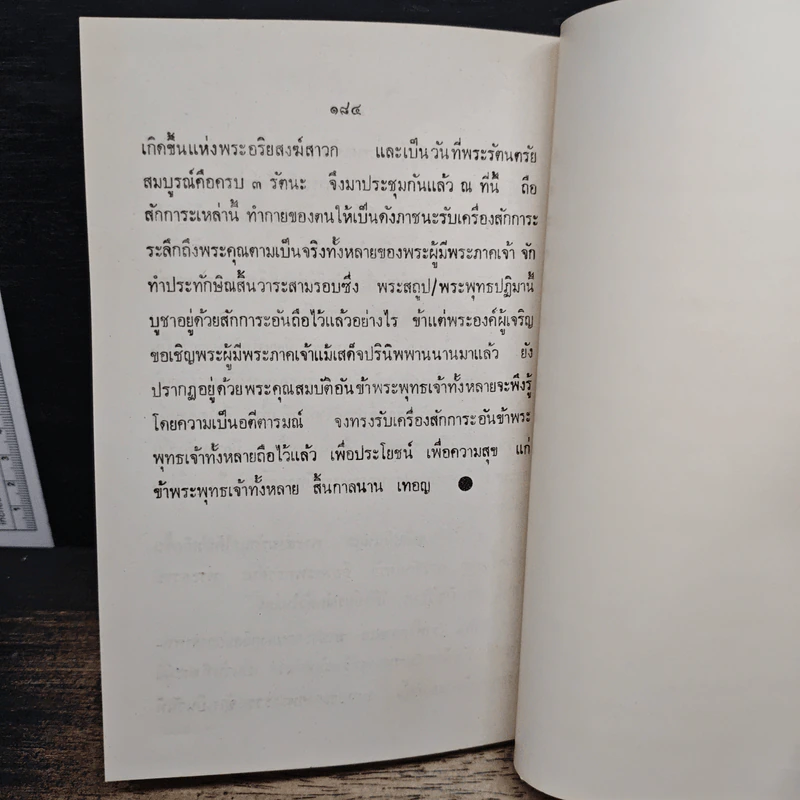 ๑๘๔
เกิดขึ้นแห่งพระอริยสงฆ์สาวก และเป็นวันที่พระรัตนตรัย
สมบูรณ์คือครบ ๓ รัตนะ จึงมาประชุมกันแล้ว ณ ที่นี้ ถือ
สักการะเหล่านี้ ทำกายของตนให้เป็นดังภาชนะรับเครื่องสักการะ
ระลึกถึงพระคุณตามเป็นจริงทั้งหลายของพระผู้มีพระภาคเจ้า จัก
ทำประทักษิณสิ้นวาระสามรอบซึ่ง พระสถูป/พระพุทธปฏิมานี้
บูชาอยู่ด้วยสักการะอันถือไว้แล้วอย่างไร ข้าแต่พระองค์ผู้เจริญ
ขอเชิญพระผู้มีพระภาคเจ้าแม้เสด็จปรินิพพานนานมาแล้ว ยัง
ปรากฏอยู่ด้วยพระคุณสมบัติอันข้าพระพุทธเจ้าทั้งหลายจะพึงรู้
โดยความเป็นอตีตารมณ์ จงทรงรับเครื่องสักการะอันข้าพระ
พุทธเจ้าทั้งหลายถือไว้แล้ว เพื่อประโยชน์ เพื่อความสุข แก่
ข้าพระพุทธเจ้าทั้งหลาย สิ้นกาลนาน เทอญ ●